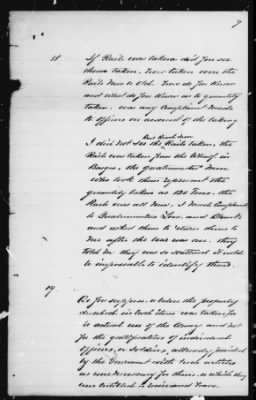 9
18 If Rails were taken did you see
them taken. How taken were the
Rails New or Old. How do you know
and what do you know as to quantity
taken. was any Complaint made
to officers on account of the taking
I did not see the Rails taken, the
Rails was taken from the Wharf in
Barges, the Quartermaster
who took them represent the
quantity taken as 120 Tons, the
Rails was all New, I made Complaint
to Quartermasters and
and asked them to return them to
me after the war was over. they
told me they were so scattered it would
be impossible to identify them.
19 Do you suppose or believe the property
described in each item was taken for
in actual use of the Army and not
for the gratification of individual
officers or Soldiers, already provided
by the Government with such articles
as are necessary for them, or which they
are entitled to receive and have